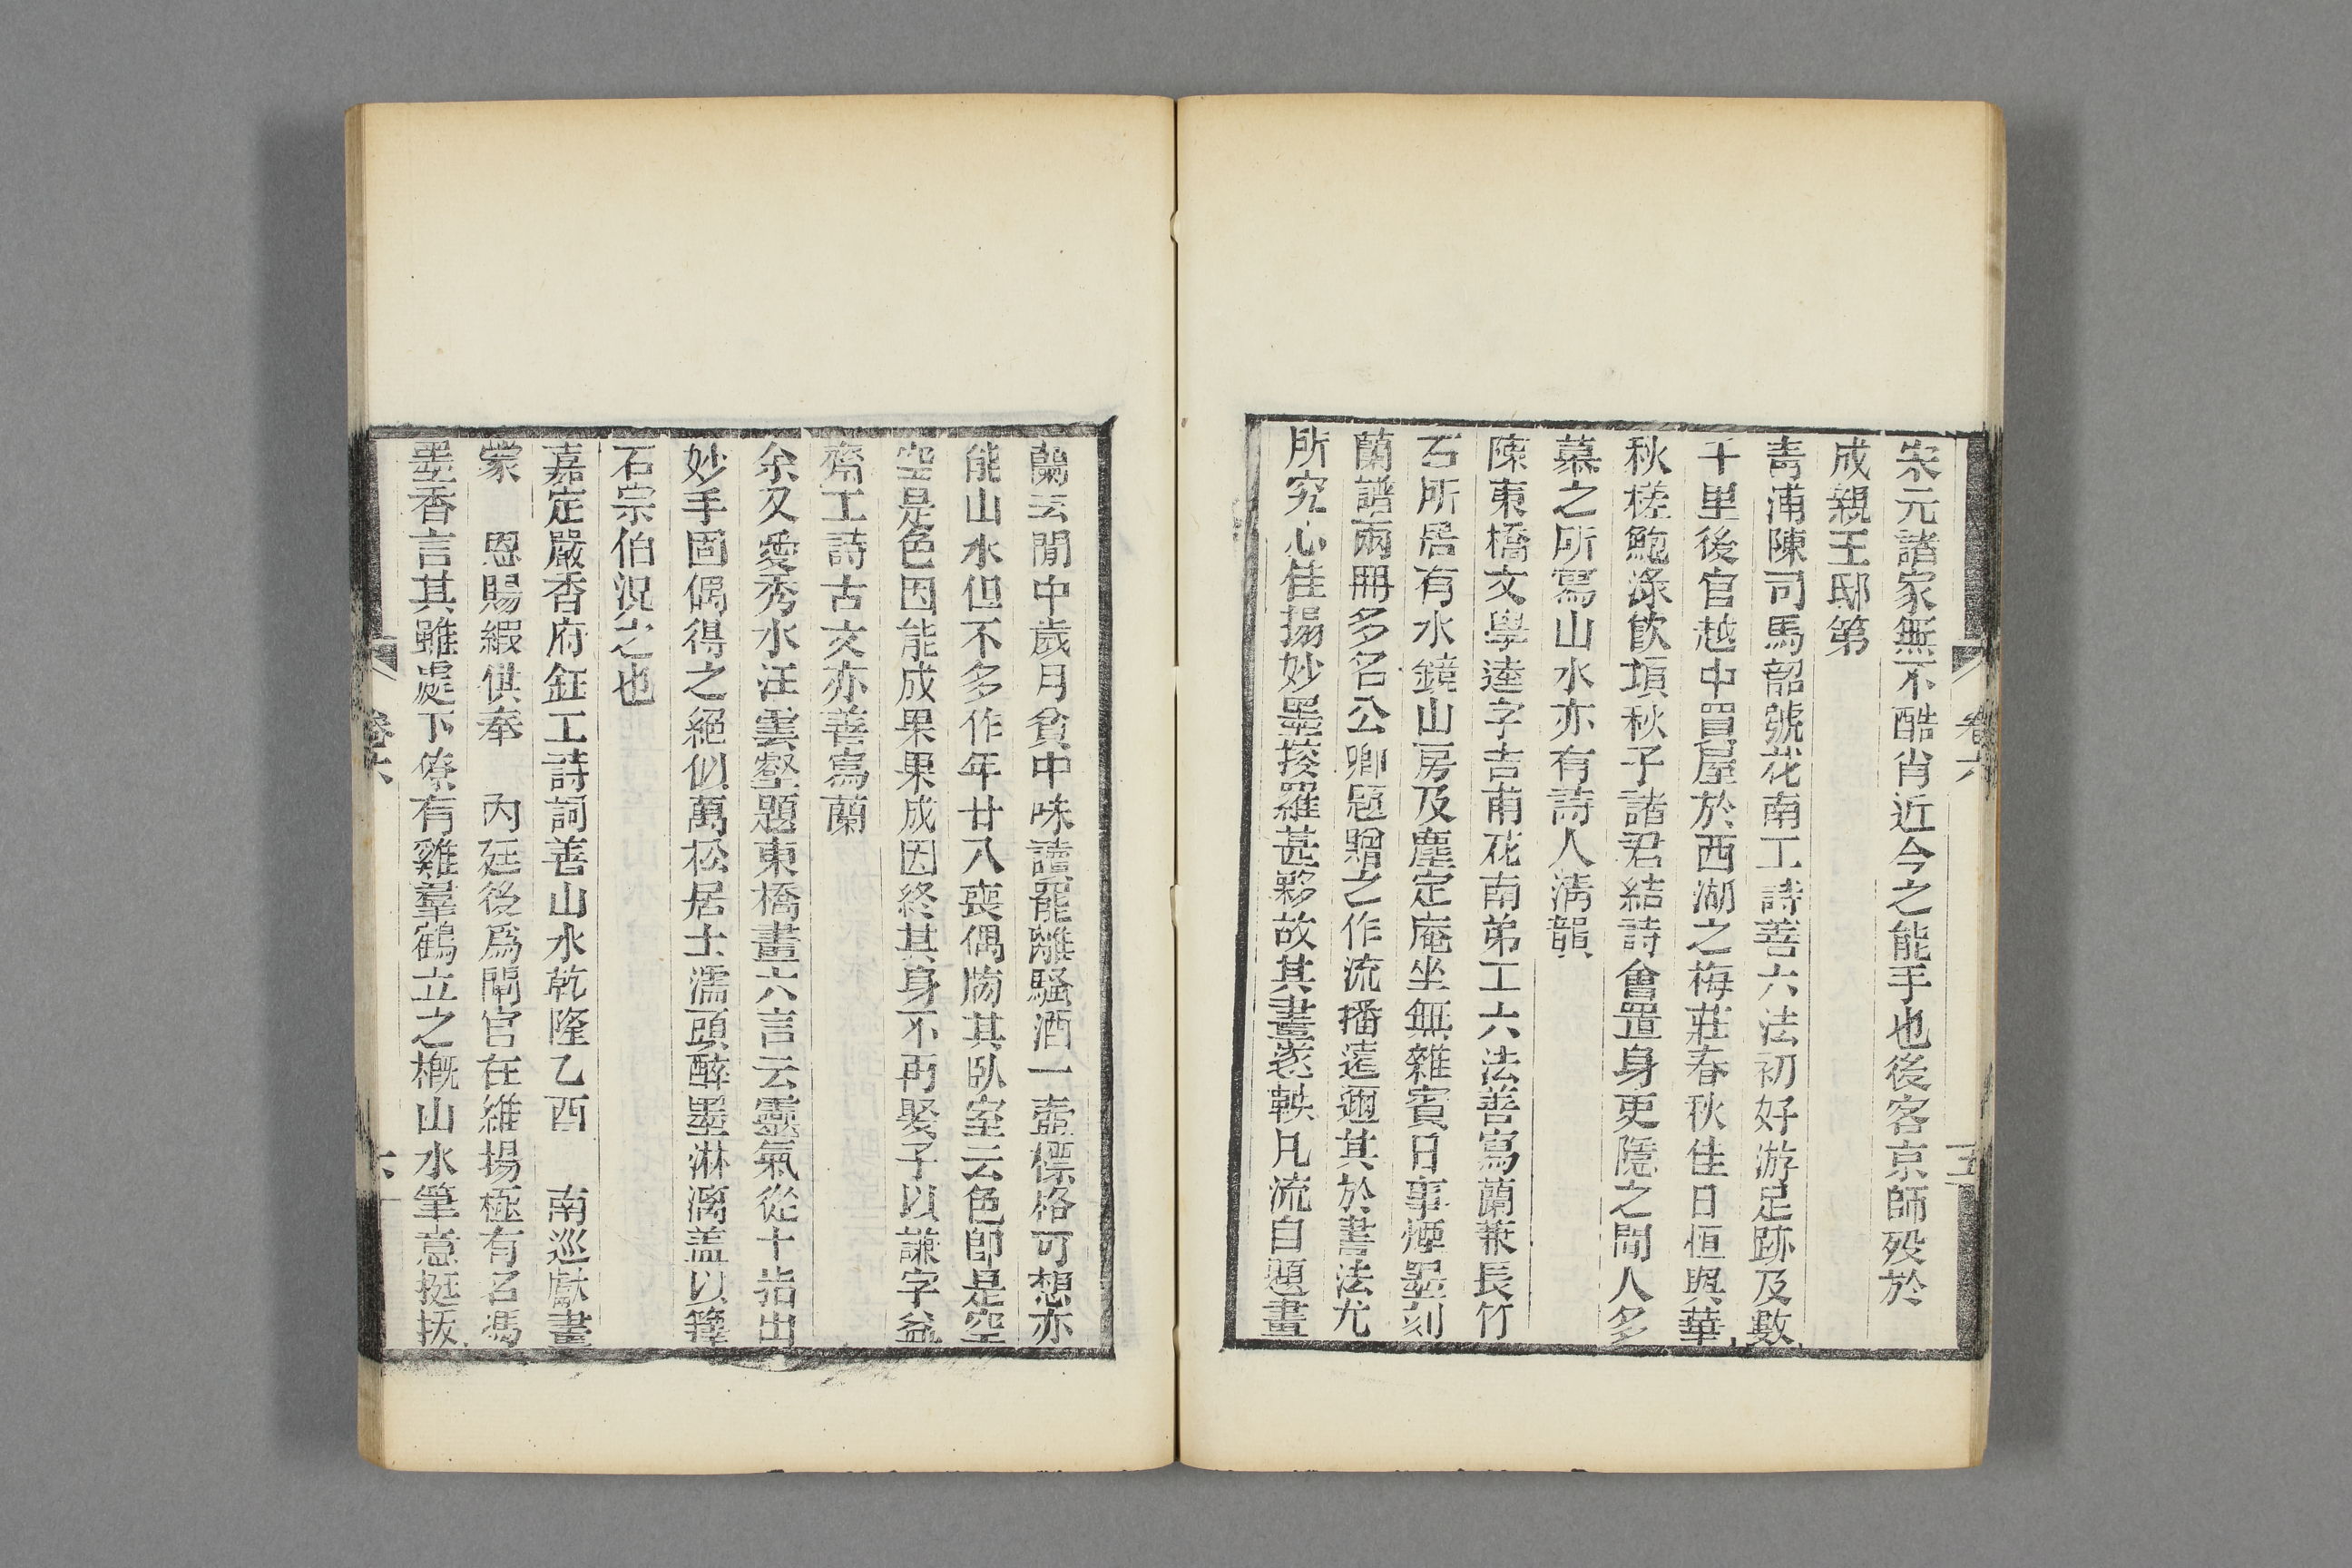 宋元諸家無不酷肖近今之能手也後客京師歿於
成親王邸第
青浦陳司馬韶號花南工詩善六法初好游足跡及數
千里後官越中買屋於西湖之梅莊春秋佳日恒與華
秋槎鮑淥飲項秋子諸君結詩會置身吏隱之閒人多
慕之所寫山水亦有詩人淸韻
陳東橋文學逵字吉甫花南弟工六法善寫蘭兼長竹
石所居有水鏡山房及塵定庵坐無雜賓日事煙墨刻
蘭譜兩冊多名公卿題贈之作流播遠邇其於書法尤
所究心佳搨妙墨搜羅甚夥故其畫遂軼凡流自題畫
卷六
五
蘭云閒中歲月貧中味讀罷離騷酒一壺標格可想亦
能山水但不多作年廿八喪偶牓其臥室云色卽是空
空是色因能成果果成因終其身不再娶子以謙字益
齋工詩古文亦善寫蘭
余又愛秀水汪雲壑題東橋畫六言云靈氣從十指出
妙手固偶得之絕似萬松居士濡頭醉墨淋漓盖以籜
石宗伯況之也
嘉定嚴香府鈺工詩詞善山水乾隆乙酉 南巡獻畫
蒙 恩賜緞供奉 內廷後爲閘官在維揚極有名馮
墨香言其雖處下僚有雞羣鶴立之槪山水筆意挺拔
卷六
六